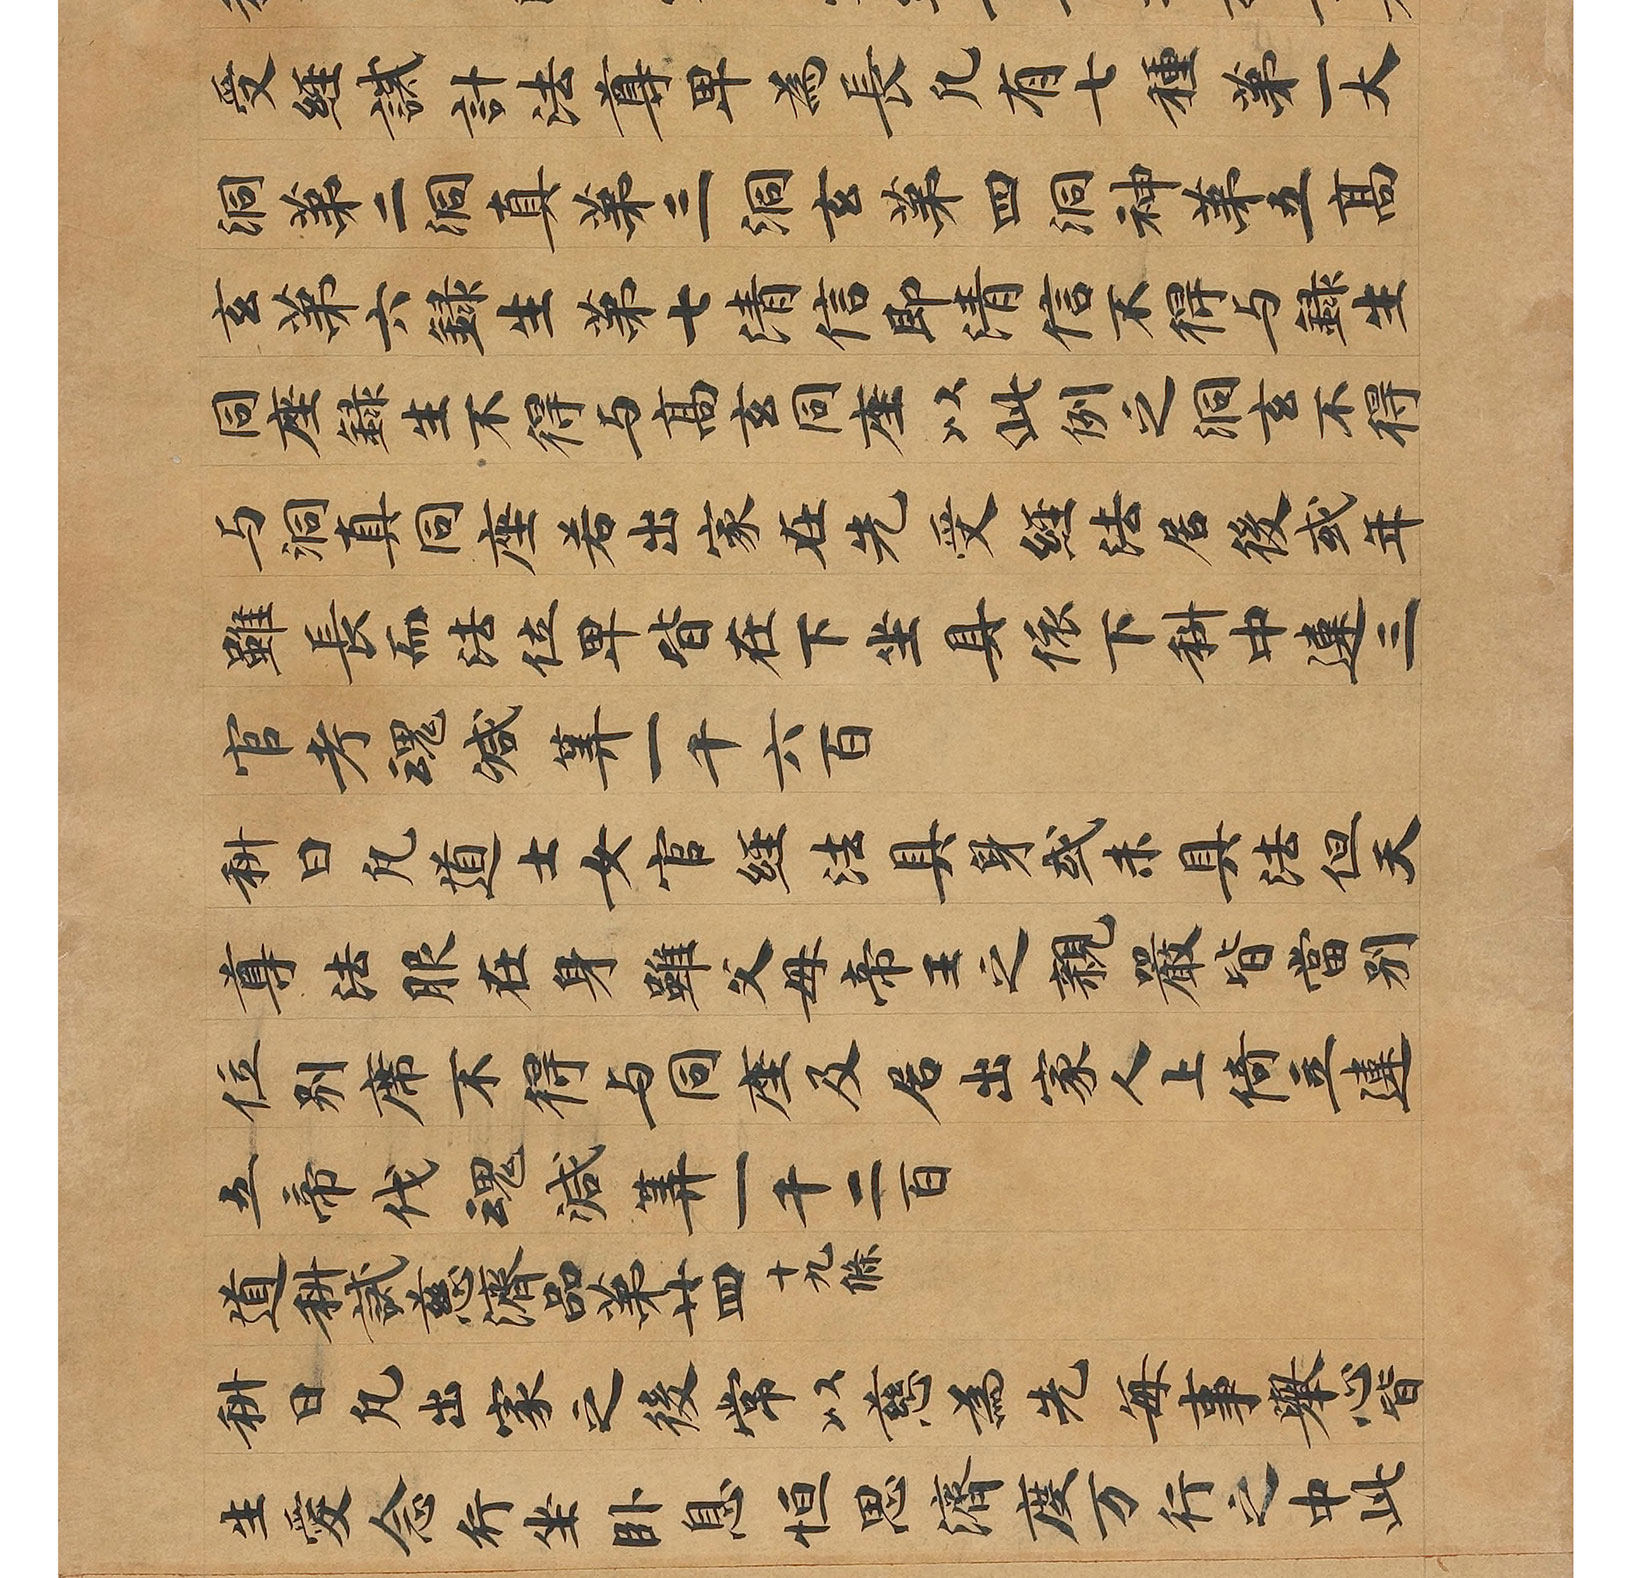 受經誡計法尊卑為長凡有七種第一大
洞第二洞真第三洞玄第四洞神第五高
玄第六録生第七清信即清信不得与録生
同座録生不得与高玄同座以此例之洞玄不得
与洞真同座若出家在先受經法居後或年
雖長而法位卑皆在下坐具依下科中違三
官考魂減筭一千六百
科曰凡道士女官經法具身或未具法但天
尊法服在身雖父母帝王之親嚴皆當別
位別席不得与同座及居出家人上倚立違
五帝伐魂減筭一千二百
道科誡慈濟品第廿四 十九條
科曰凡出家之後常以慈為先每事舉心皆
生愛念行坐卧息恒思濟度万行之中此